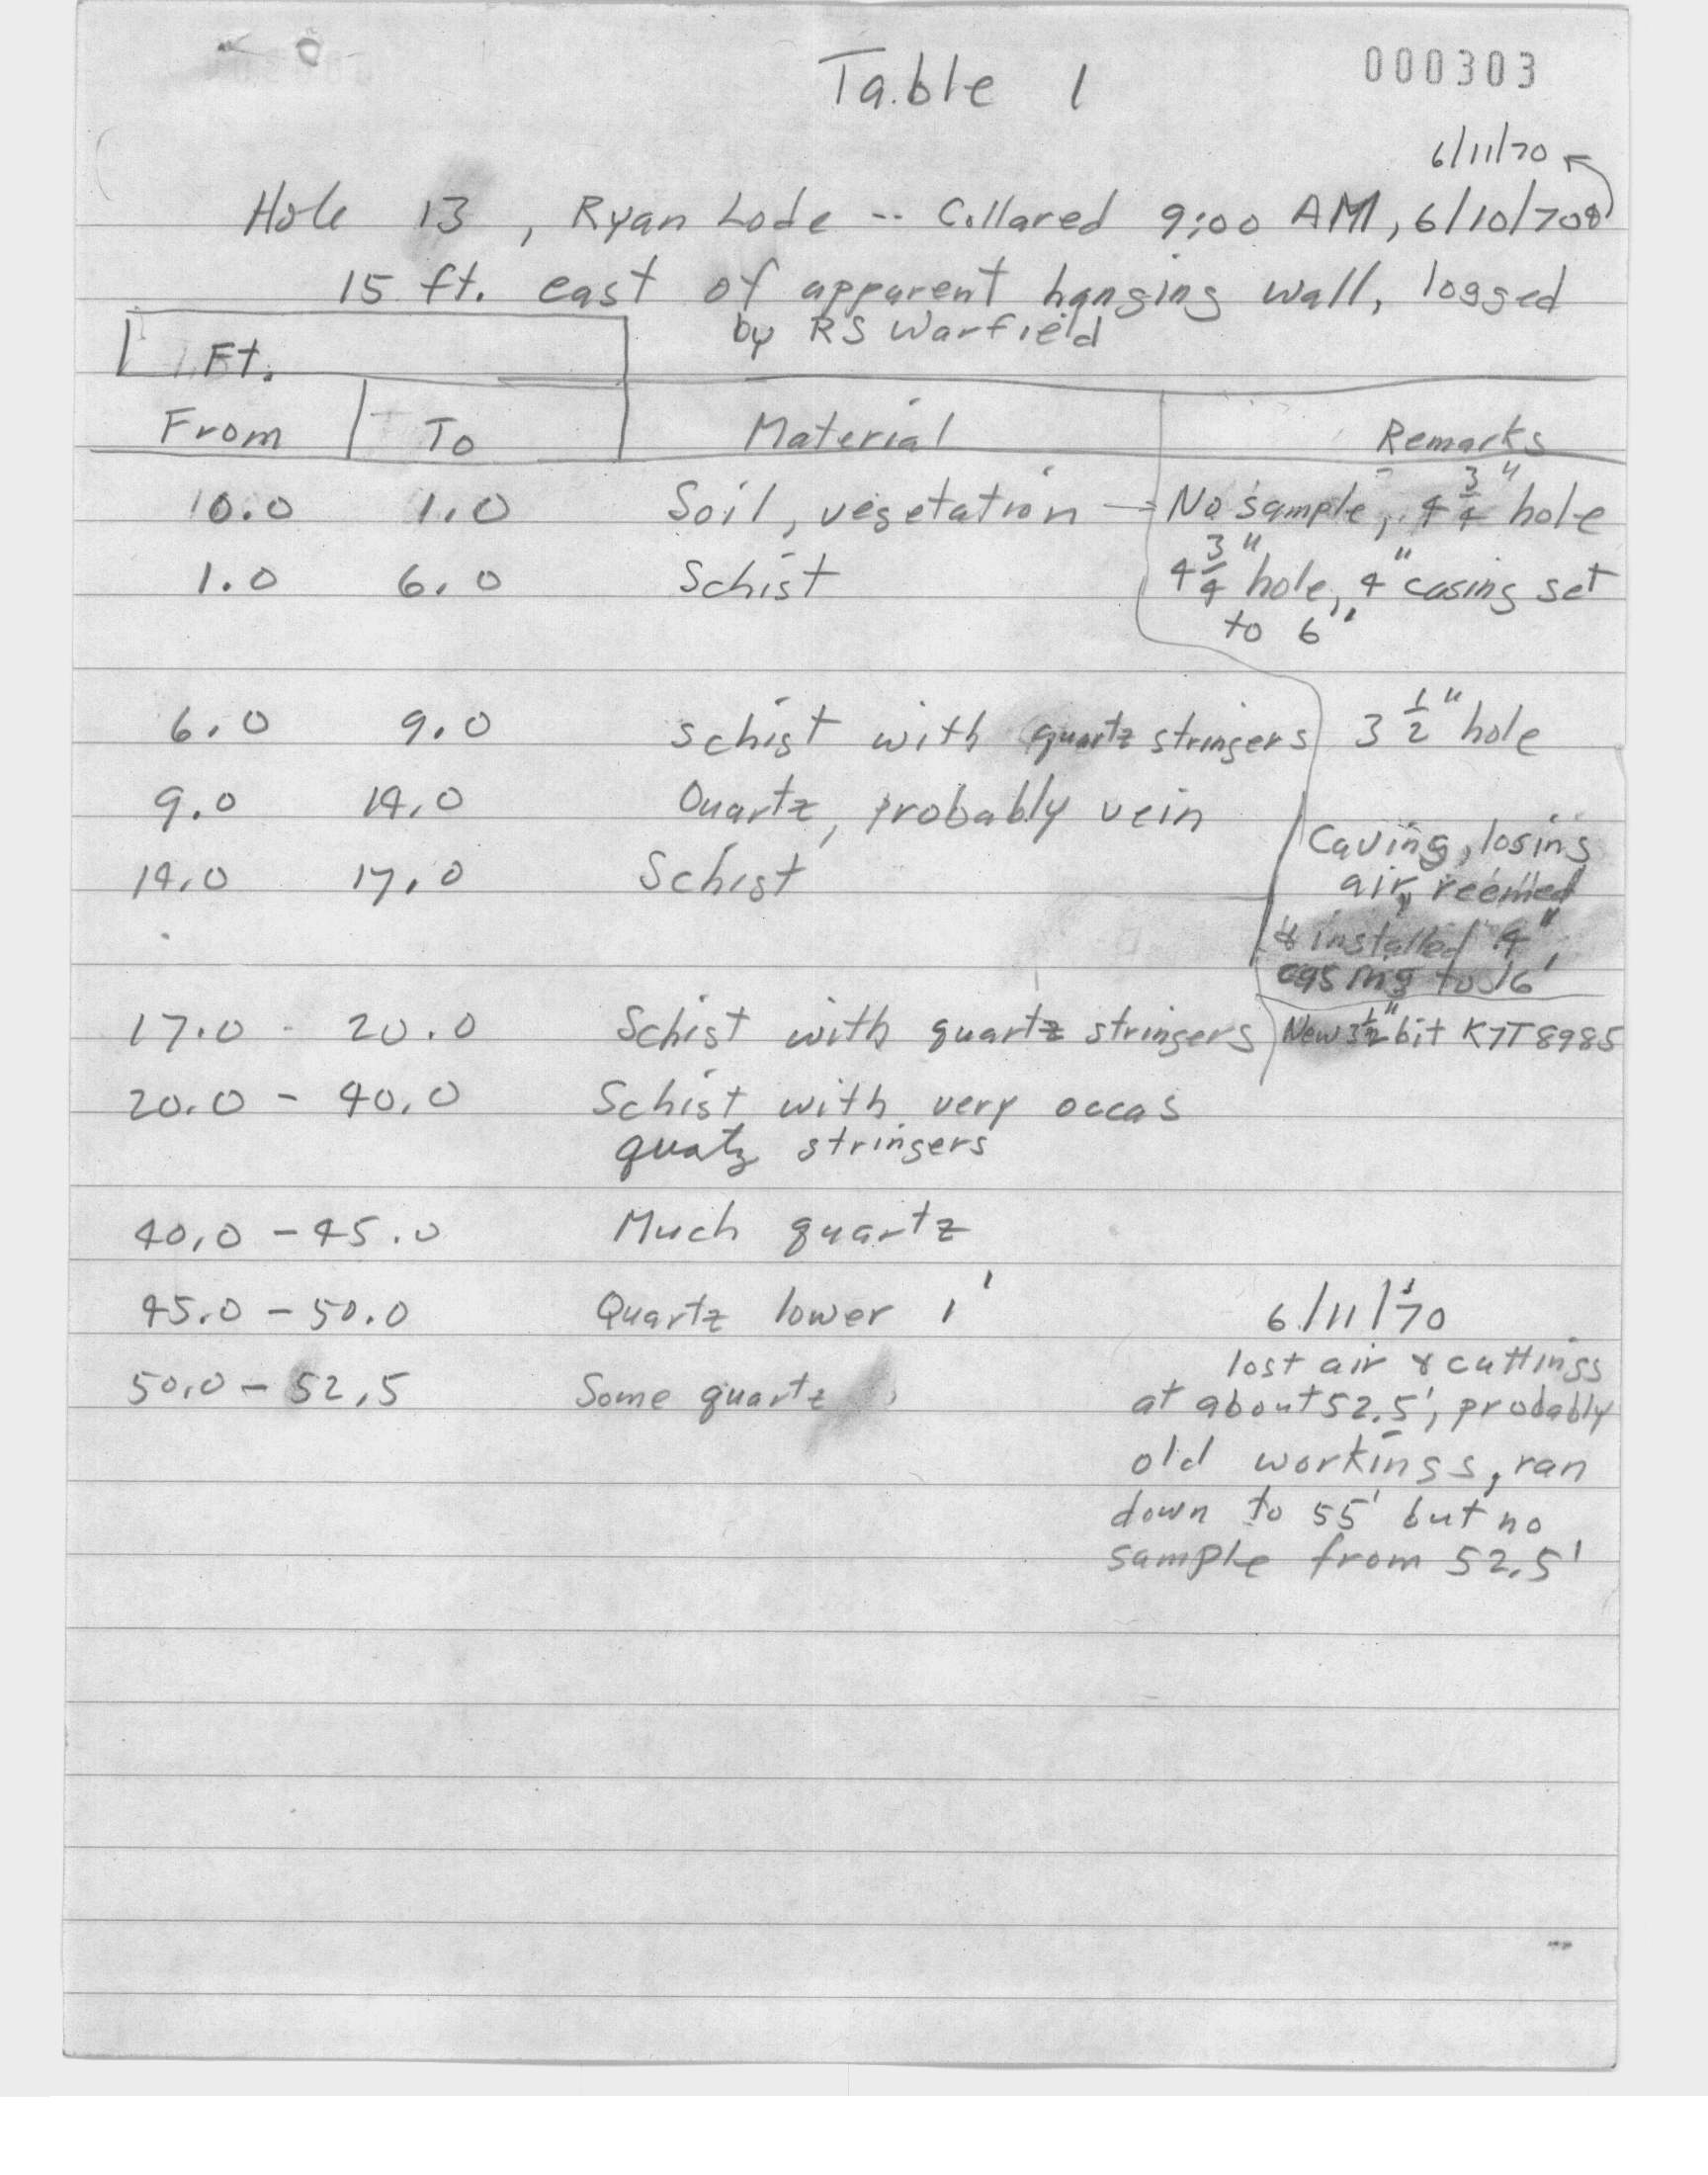 Table 1
000303
6/11/70
Hole 13, Ryan Lode -- Collared 9:00 AM, 6/10/70 &
15 ft. east of apparent hanging wall, logged
by RS Warfield
Ft.
From To Material Remarks
0.0 1.0 Soil, vegetation – No sample, 4 3/4" hole
1.0 6.0 Schist 4 3/4" hole, 4" casing set
to 6'
6.0 9.0 Schist with quartz stringers 3 1/2" hole
9.0 14.0 Quartz, probably vein
Caving, losing
14.0 17.0 Schist air, reemed
& installed 4"
casing to 16'
17.0 - 20.0 Schist with quartz stringers New 3 1/2" bit K7T8985
20.0 - 40.0 Schist with very occas
quatz stringers
40.0 - 45.0 Much quartz
45.0 - 50.0 Quartz lower 1' 6/11/70
lost air & cuttings
50.0 - 52.5 Some quartz at about 52.5', probably
old workings, ran
down to 55' but no
sample from 52.5'